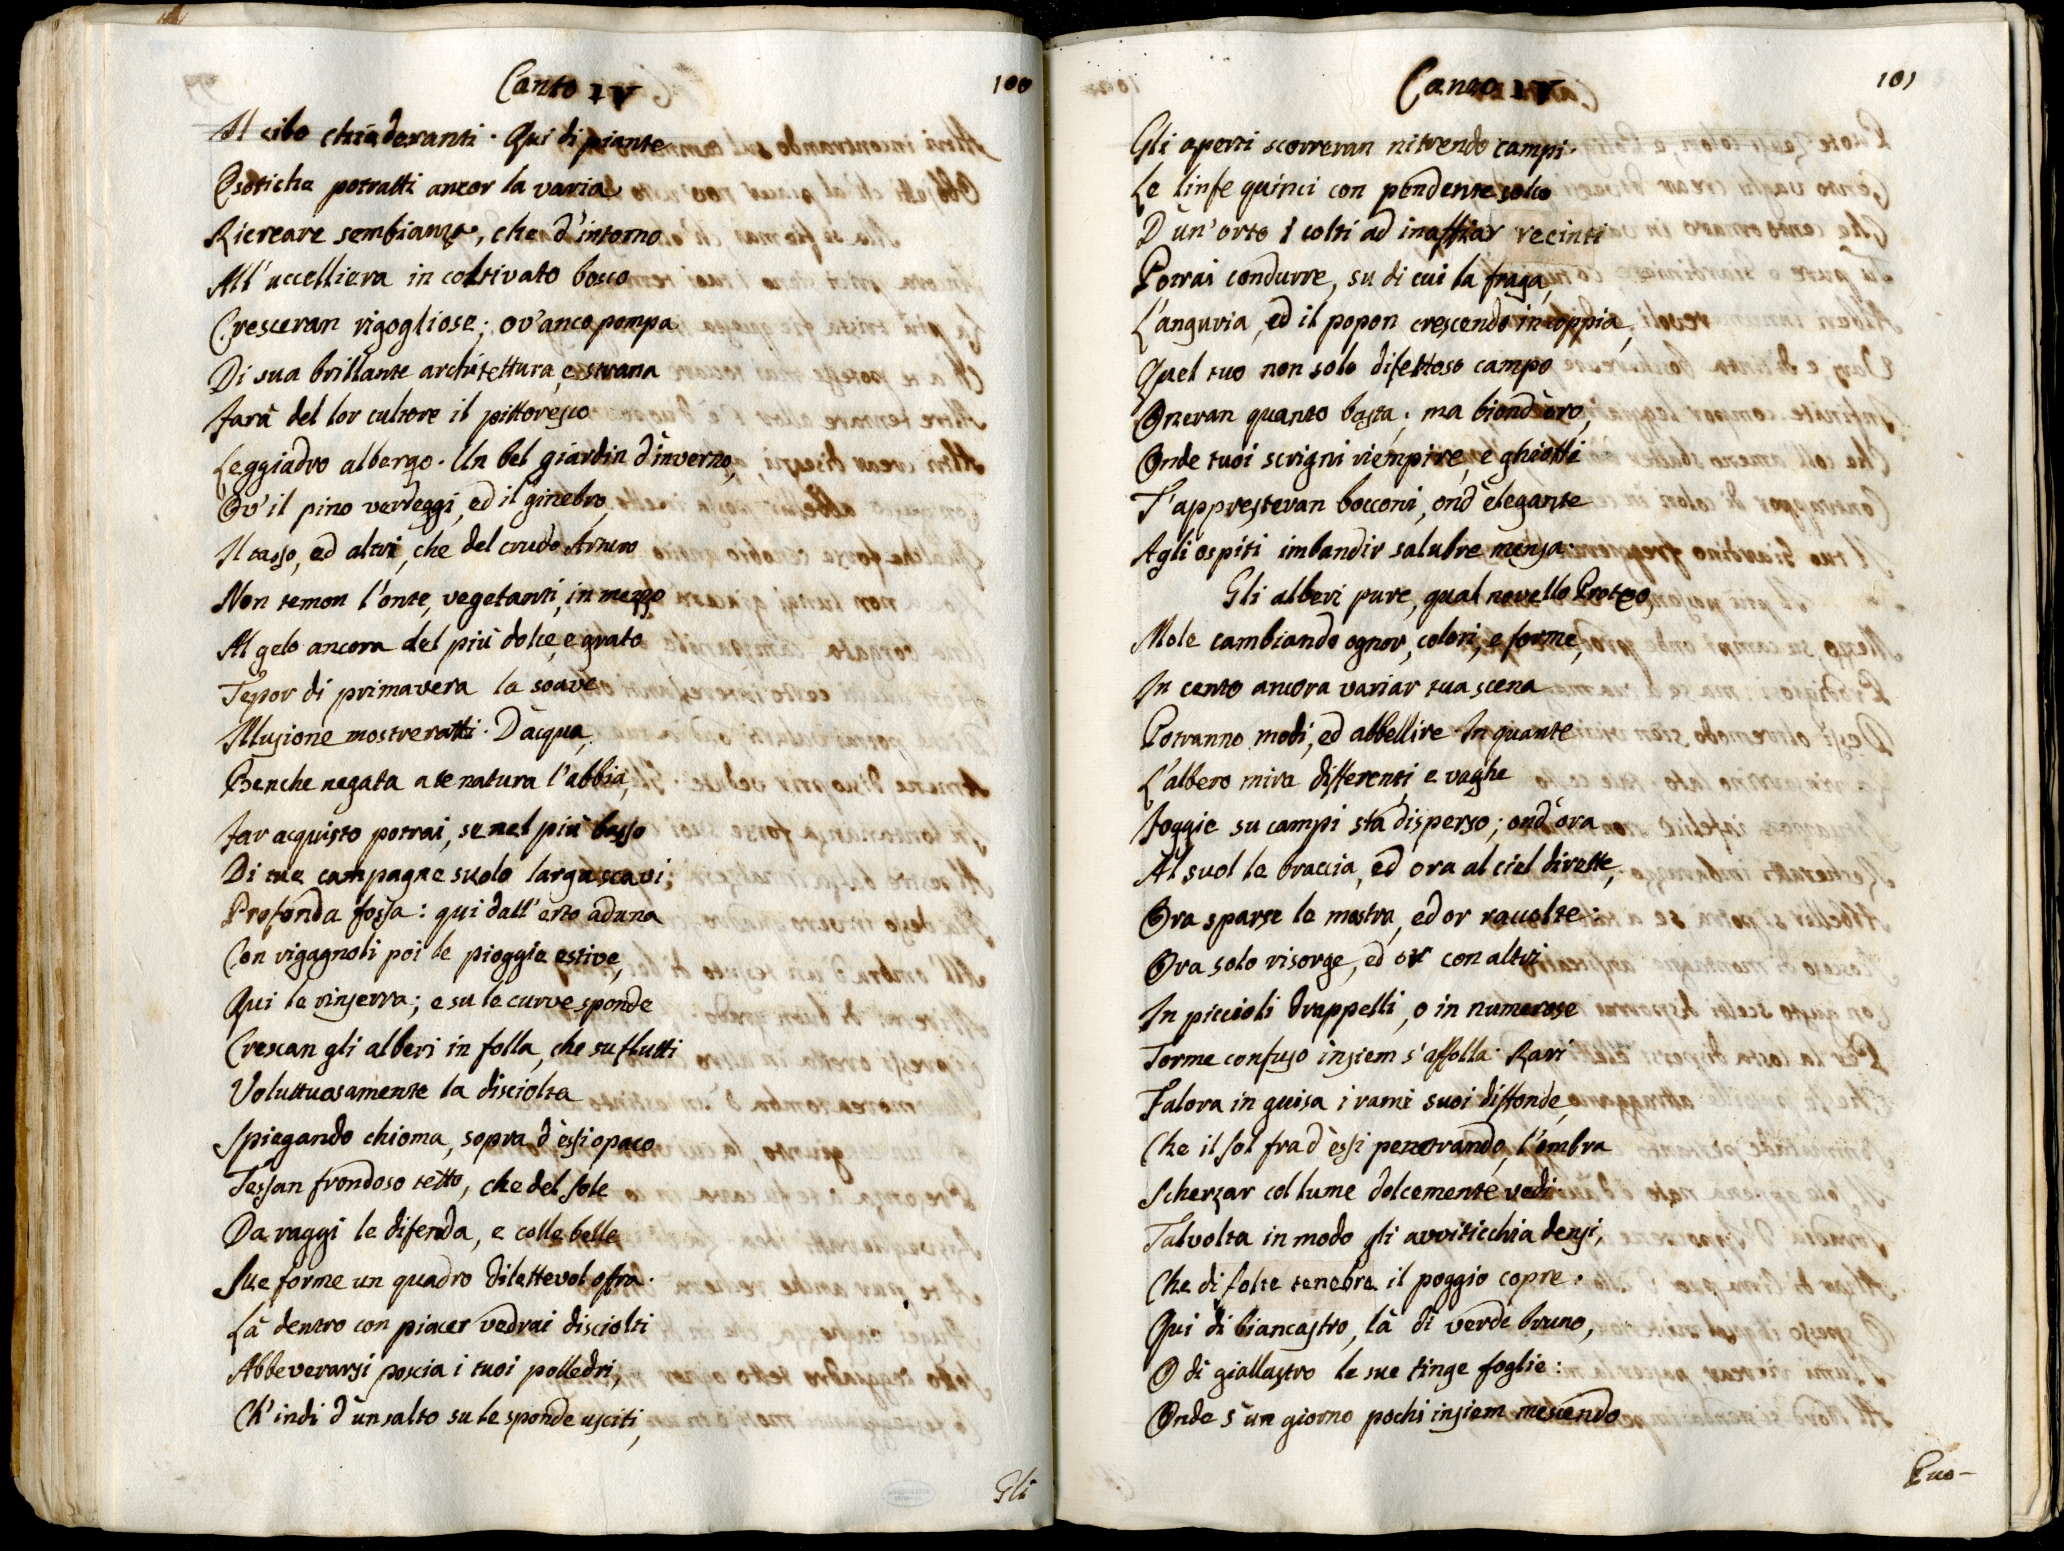 Canto VI
100
Il cibo chiederanti. Qui di piante
Esotiche potratti ancor la varia
Ricreare sembianza, che d'intorno
All'uccelliera in coltivato bosco
Cresceran rigogliose; ov'anco pompa
Di sua brillante architettura, e strana
Farà del lor cultore il pittoresco
Leggiadro albergo. Un bel giardin d'inverno,
Ov'il pino verdeggi, ed il ginebro,
Il tasso, ed altri, che del crudo Arturo
Non temon l'onte, vegetanti, in mezzo
Al gelo ancora del più dolce, e grato
Tepor di primavera la soave
Illusione mostreratti. D'acqua,
Benche negata a te natura l'abbia,
Far acquisto potrai, se nel più basso
Di tue campagne suolo larga scavi;
Profonda fossa: qui dall'erto aduna
Con rigagnoli poi le pioggie estive,
Qui le rinserra; e su le curve sponde
Crescan gli alberi in folla, che su flutti
Voluttuosamente la disciolta
Spiegando chioma, sopra d'essi opaco
Tessan frondoso tetto, che del sole
Da raggi le difenda, e colle belle
Sue forme un quadro dilettevol offra.
Là dentro con piacer vedrai disciolti
Abbeverarsi poscia i tuoi polledri,
Ch'indi d'un salto su le sponde usciti,
Gli
Canto VI
101
Gli aperti scorreran nitrendo campi.
Le linfe quinci con pendente solco
D'un'orto i colti ad inaffiar recinti
Potrai condurre, su di cui la fraga,
L'anguria, ed il popon crescendo in coppia,
Quel tuo non solo difettoso campo
Oneran quanto basta; ma biond'oro,
Onde tuoi scrigni riempire, e ghiotti
T'appresteran bocconi, ond'elegante
Agli ospiti imbandir salubre mensa.
Gli alberi pure, qual novello Proteo,
Mole cambiando ognor, colori, e forme,
In cento ancora variar tua scena
Potranno modi, ed abbellire In quante
L'albero mira differenti, e vaghe
Foggie su campi stà disperso; ond'ora
Al suol le braccia, ed ora al ciel dirette,
Ora sparse le mostra, ed or raccolte:
Ora solo risorge, ed or con altri
In piccioli drappelli, o in numerose
Torme confuso insiem s'affolla. Rari
Talora in guisa i rami suoi diffonde,
Che il sol fra d'essi penetrando, l'ombra
Scherzar col lume dolcemente vedi
Talvolta in modo gli avviticchia densi,
Che di folte tenebre il poggio copre.
Qui di biancastro, là di verde bruno,
O di giallastro le sue tinge foglie:
Onde s'un giorno pochi insiem mescendo